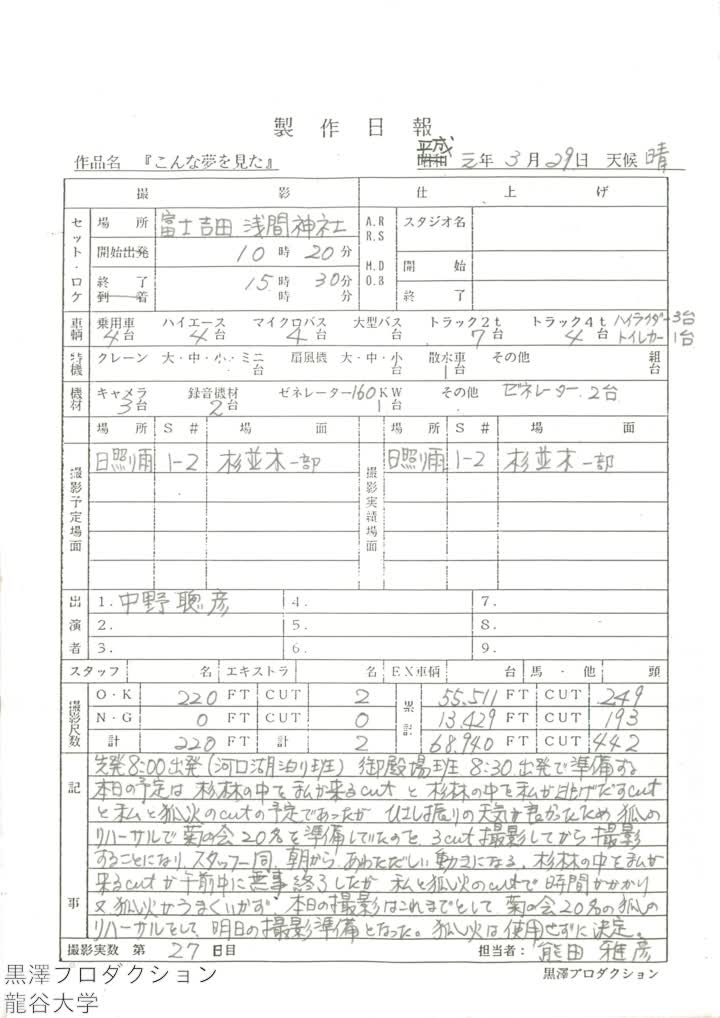 製作日報
作品名 『こんな夢を見た』 昭和 平成 元年 3月 29日 天候 晴
撮影 仕上げ
セット・ロケ 場所 富士吉田 浅間神社 A.R R.S スタジオ名
開始出発 10時 20分 M.D O.B 開始
終了 15時 30分 終了
到着 時 分
車輌 乗用車 4台 ハイエース 4台 マイクロバス 4台 大型バス 台 トラック2t 7台 トラック4t 4台 ハイライダー3台 トイレカー1台
特機 クレーン 大・中・小・ミニ 台 扇風機 大・中・小 台 散水車 1台 その他 組 台
機材 キャメラ 3台 録音機材 2台 ゼネレーター160KW 1台 その他 ゼネレーター 2台
場所 S# 場面 場所 S# 場面
撮影予定場面 日照り雨 1-2 杉並木一部 撮影実績場面 日照り雨 1-2 杉並木一部
出演者 1. 中野聰彦 4. 7.
2. 5. 8.
3. 6. 9.
スタッフ 名 エキストラ 名 EX車輌 台 馬・他 頭
撮影尺数 O・K 220 FT CUT 2 累計 55.511 FT CUT 249
N・G 0 FT CUT 0 13.429 FT CUT 193
計 220 FT 計 2 68.940 FT CUT 442
記事 先発8:00出発(河口湖泊り班) 御殿場班 8:30出発で準備する
本日の予定は 杉林の中を私が来るcutと 杉林の中を私が逃げだすcut
と私と狐火のcutの予定であったが ひさし振りの天気が良かったため 狐の
リハーサルで菊の会20名を準備していたのを、3cut撮影してから撮影
することになり、スタッフ一同、朝から、あわただしい動きになる。杉林の中を私が
来るcutが午前中に無事終了したが 私と狐火のcutで時間がかかり
又狐火がうまくいかず 本日の撮影はこれまでとして 菊の会20名の狐の
リハーサルをして、明日の撮影準備となった。狐火は使用せずに決定。
撮影実数 第 27 日目 担当者: 熊田 雅彦
黒澤プロダクション
黒澤プロダクション
龍谷大学